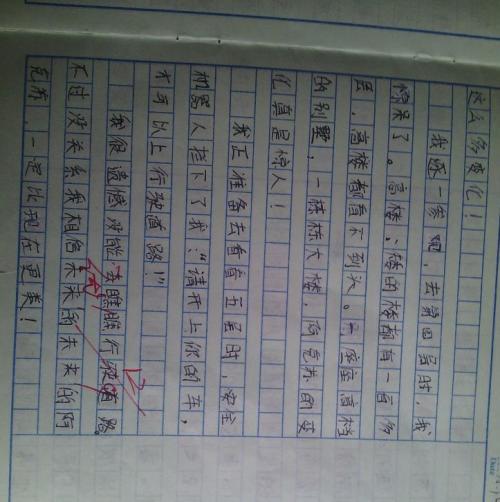 这么多变化!
我逐一参观,去第四层时,我
惊呆了。高楼,楼的楼都有一百多
层,高楼都看不到头。一座座高档
的别墅,一栋栋大楼,阿克苏的变
化真是惊人!
我正准备去看看五层时,安全
机器人拦下了我:“请开上你的车,
才可以上行驶道路!”
我很遗憾没能去瞧瞧行驶道路。
不过没关系我相信未来的未来的阿
克苏,一定比现在更美!